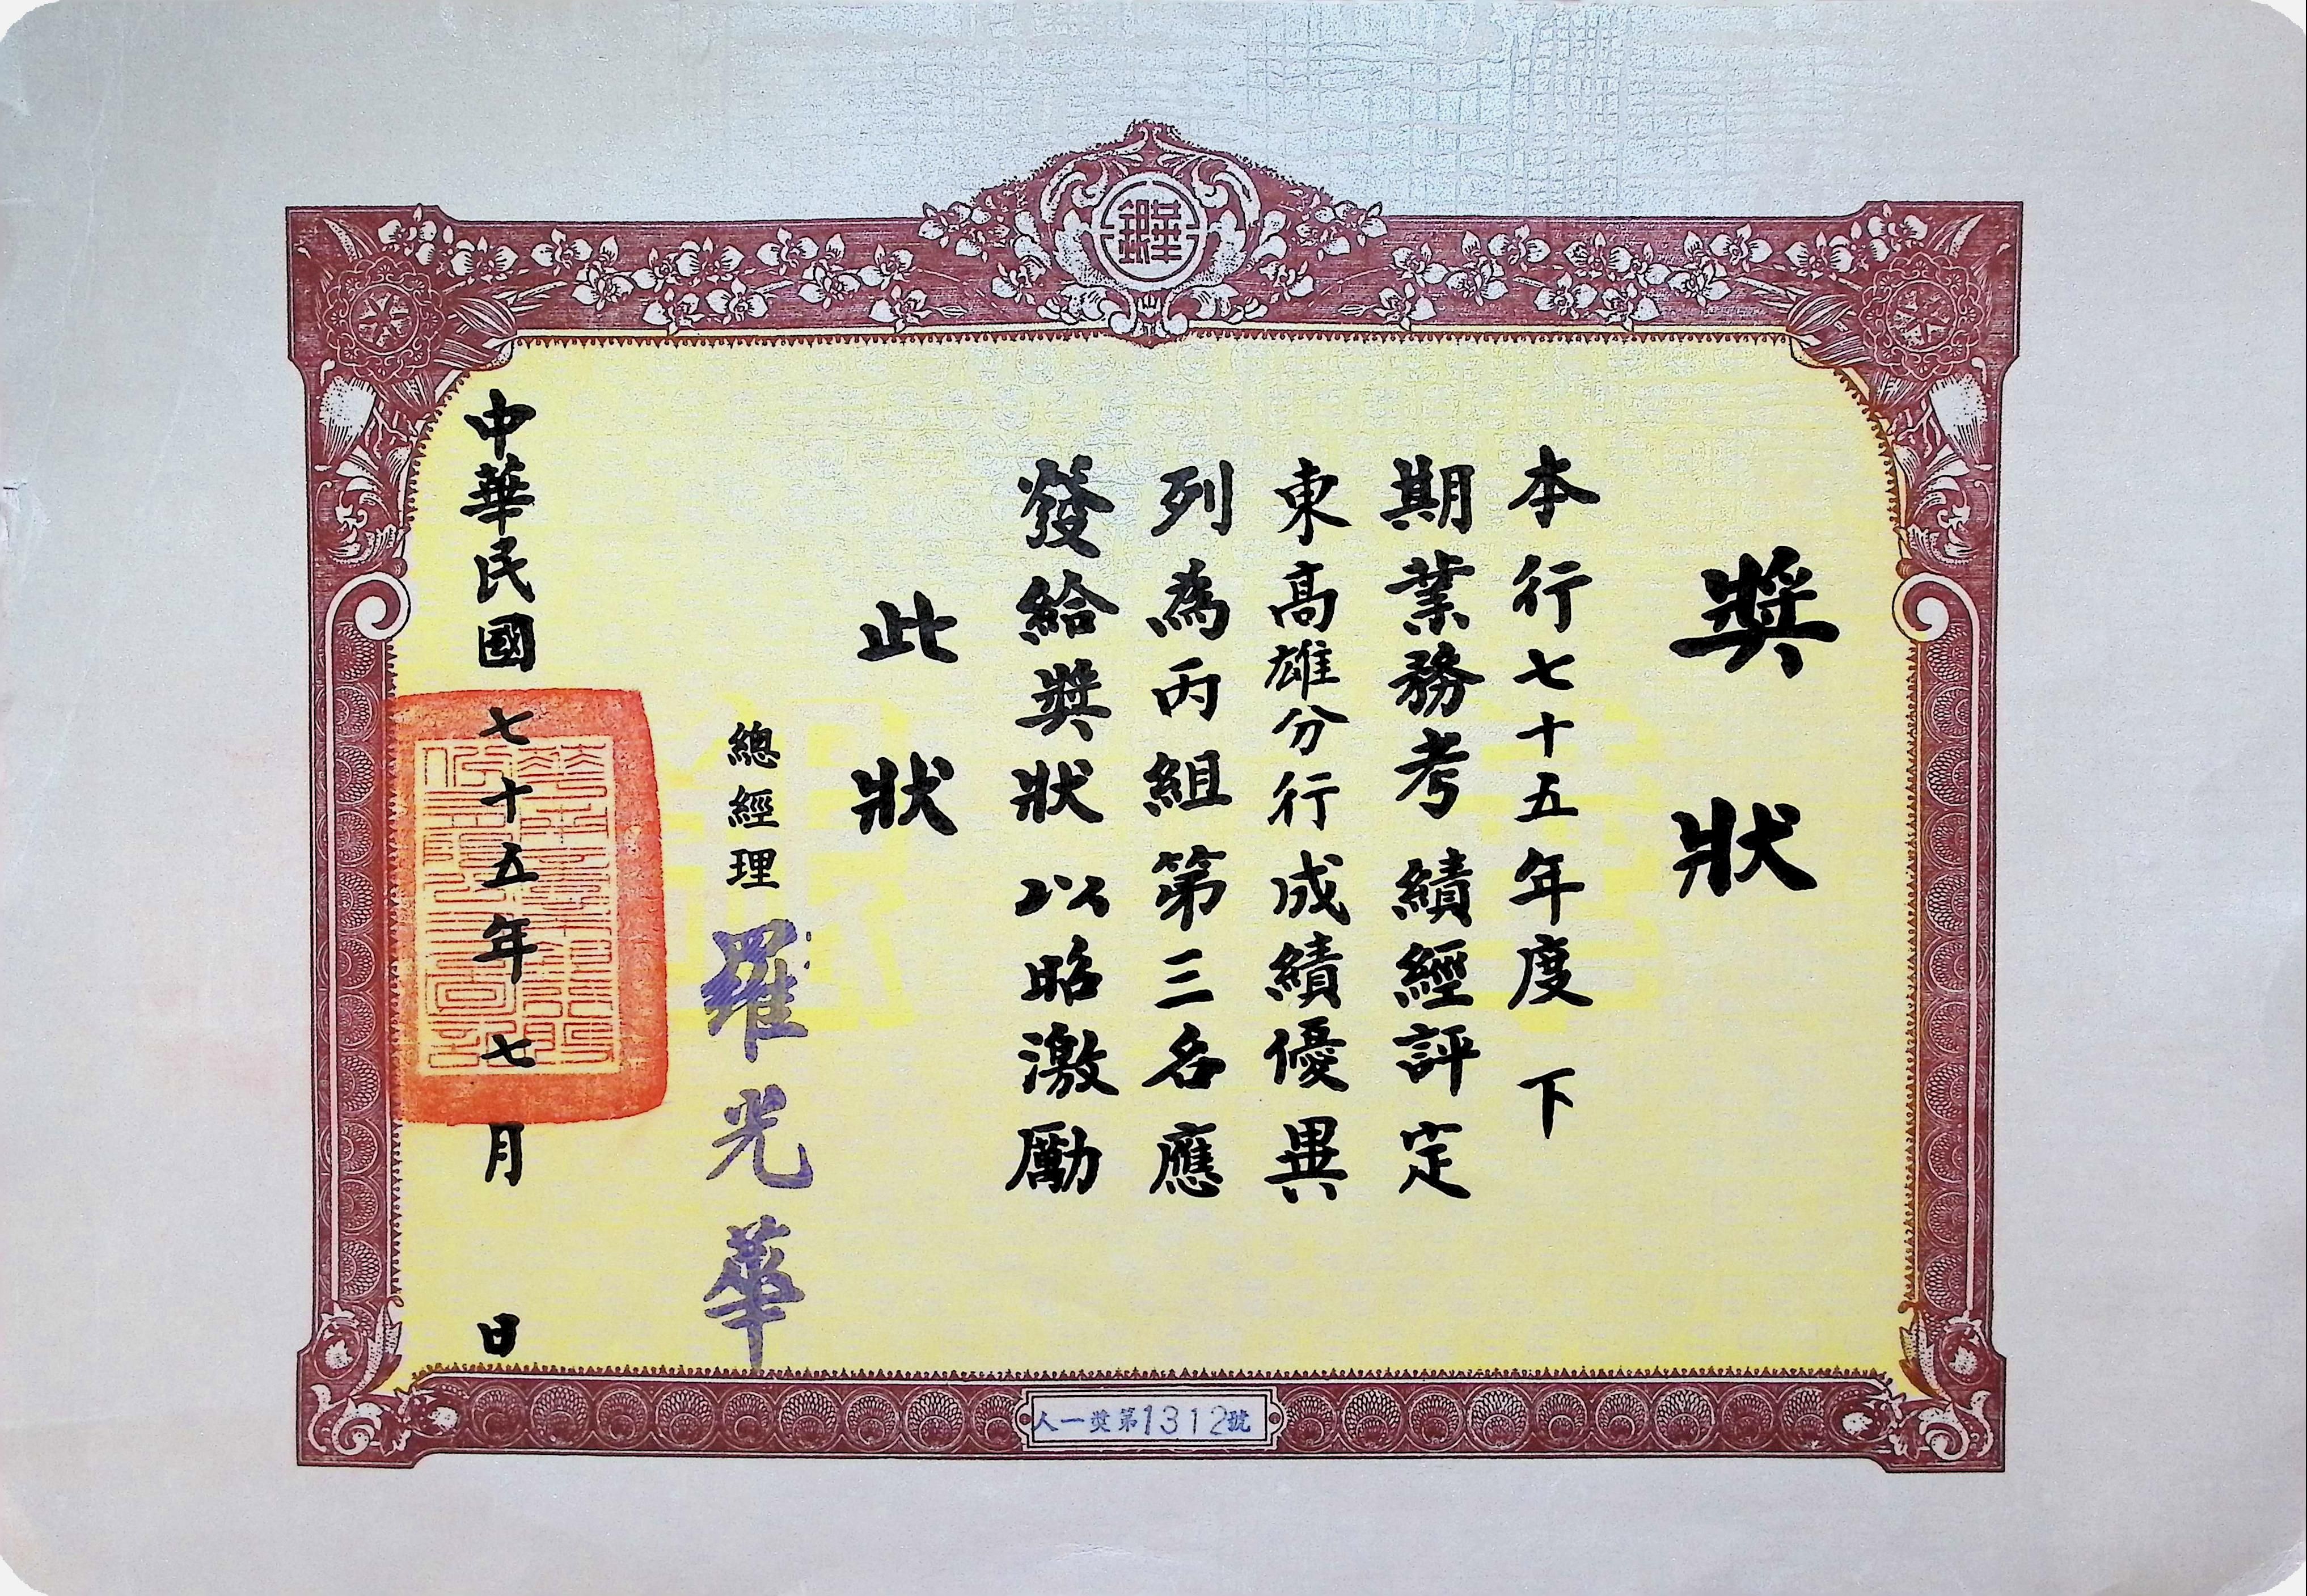 獎狀
本行七十五年度下
期業務考績經評定
東高雄分行成績優異
列為丙組第三名應
發給獎狀以昭激勵
此狀
總經理 羅光華
中華民國七十五年七月 日
人一獎第1312號